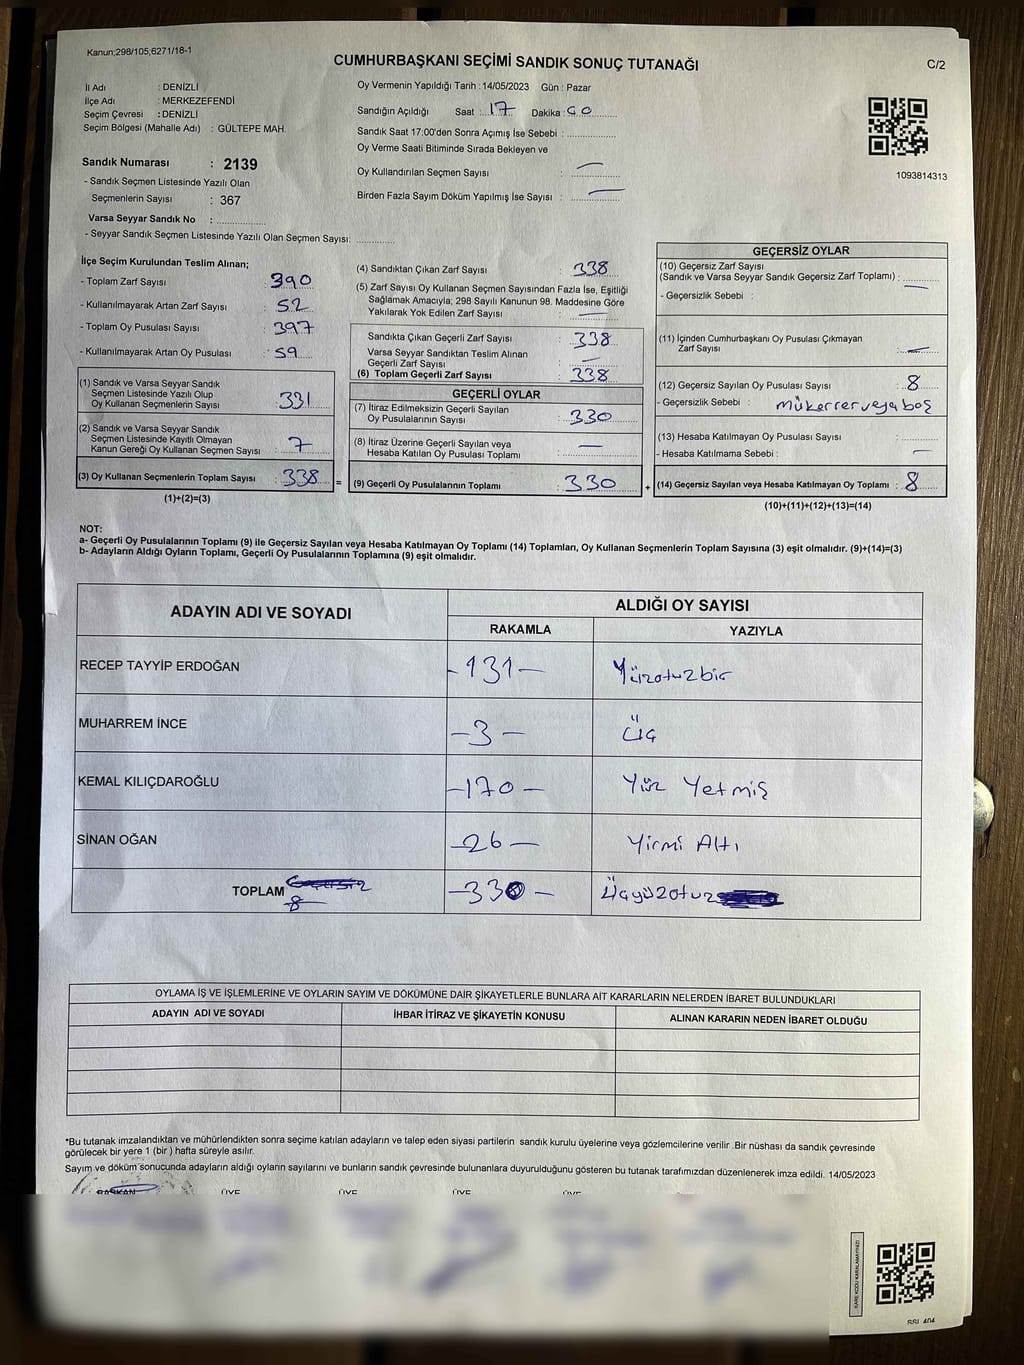 Kanun;298/105,6271/18-1
CUMHURBAŞKANI SEÇİMİ SANDIK SONUÇ TUTANAĞI
C/2
İl Adı : DENİZLİ
İlçe Adı : MERKEZEFENDİ
Seçim Çevresi : DENİZLİ
Seçim Bölgesi (Mahalle Adı) : GÜLTEPE MAH.
Sandık Numarası : 2139
- Sandık Seçmen Listesinde Yazılı Olan
Seçmenlerin Sayısı : 367
Varsa Seyyar Sandık No :
- Seyyar Sandık Seçmen Listesinde Yazılı Olan Seçmen Sayısı:
Oy Vermenin Yapıldığı Tarih : 14/05/2023 Gün : Pazar
Sandığın Açıldığı Saat : 17 Dakika :
Sandık Saat 17:00'den Sonra Açımış İse Sebebi :
Oy Verme Saati Bitiminde Sırada Bekleyen ve
Oy Kullandırılan Seçmen Sayısı : —
Birden Fazla Sayım Döküm Yapılmış İse Sayısı : —
1093814313
İlçe Seçim Kurulundan Teslim Alınan;
- Toplam Zarf Sayısı : 390
- Kullanılmayarak Artan Zarf Sayısı : 52
- Toplam Oy Pusulası Sayısı : 397
- Kullanılmayarak Artan Oy Pusulası : 59
(1) Sandık ve Varsa Seyyar Sandık
Seçmen Listesinde Yazılı Olup
Oy Kullanan Seçmenlerin Sayısı : 331
(2) Sandık ve Varsa Seyyar Sandık
Seçmen Listesinde Kayıtlı Olmayan
Kanun Gereği Oy Kullanan Seçmen Sayısı : 7
(3) Oy Kullanan Seçmenlerin Toplam Sayısı : 338 =
(1)+(2)=(3)
(4) Sandıktan Çıkan Zarf Sayısı : 338
(5) Zarf Sayısı Oy Kullanan Seçmen Sayısından Fazla İse, Eşitliği
Sağlamak Amacıyla; 298 Sayılı Kanunun 98. Maddesine Göre
Yakılarak Yok Edilen Zarf Sayısı : —
Sandıkta Çıkan Geçerli Zarf Sayısı : 338
Varsa Seyyar Sandıktan Teslim Alınan
Geçerli Zarf Sayısı : —
(6) Toplam Geçerli Zarf Sayısı : 338
GEÇERLİ OYLAR
(7) İtiraz Edilmeksizin Geçerli Sayılan
Oy Pusulalarının Sayısı : 330
(8) İtiraz Üzerine Geçerli Sayılan veya
Hesaba Katılan Oy Pusulası Toplamı : —
(9) Geçerli Oy Pusulalarının Toplamı : 330 +
GEÇERSİZ OYLAR
(10) Geçersiz Zarf Sayısı
(Sandık ve Varsa Seyyar Sandık Geçersiz Zarf Toplamı) : —
- Geçersizlik Sebebi :
(11) İçinden Cumhurbaşkanı Oy Pusulası Çıkmayan
Zarf Sayısı : —
(12) Geçersiz Sayılan Oy Pusulası Sayısı : 8
- Geçersizlik Sebebi : mükerrer veya boş
(13) Hesaba Katılmayan Oy Pusulası Sayısı :
- Hesaba Katılmama Sebebi : —
(14) Geçersiz Sayılan veya Hesaba Katılmayan Oy Toplamı : 8
(10)+(11)+(12)+(13)=(14)
NOT:
a- Geçerli Oy Pusulalarının Toplamı (9) ile Geçersiz Sayılan veya Hesaba Katılmayan Oy Toplamı (14) Toplamları, Oy Kullanan Seçmenlerin Toplam Sayısına (3) eşit olmalıdır. (9)+(14)=(3)
b- Adayların Aldığı Oyların Toplamı, Geçerli Oy Pusulalarının Toplamına (9) eşit olmalıdır.
ADAYIN ADI VE SOYADI ALDIĞI OY SAYISI
RAKAMLA YAZIYLA
RECEP TAYYİP ERDOĞAN -131- Yüzotuzbir
MUHARREM İNCE -3- Üç
KEMAL KILIÇDAROĞLU -170- Yüz Yetmiş
SİNAN OĞAN -26- Yirmi Altı
TOPLAM -330- Üçyüzotuz
8
OYLAMA İŞ VE İŞLEMLERİNE VE OYLARIN SAYIM VE DÖKÜMÜNE DAİR ŞİKAYETLERLE BUNLARA AİT KARARLARIN NELERDEN İBARET BULUNDUKLARI
ADAYIN ADI VE SOYADI İHBAR İTİRAZ VE ŞİKAYETİN KONUSU ALINAN KARARIN NEDEN İBARET OLDUĞU
*Bu tutanak imzalandıktan ve mühürlendikten sonra seçime katılan adayların ve talep eden siyasi partilerin sandık kurulu üyelerine veya gözlemcilerine verilir .Bir nüshası da sandık çevresinde
görülecek bir yere 1 (bir ) hafta süreyle asılır.
Sayım ve döküm sonucunda adayların aldığı oyların sayılarını ve bunların sandık çevresinde bulunanlara duyurulduğunu gösteren bu tutanak tarafımızdan düzenlenerek imza edildi. 14/05/2023
BAŞKAN ÜYE ÜYE ÜYE ÜYE